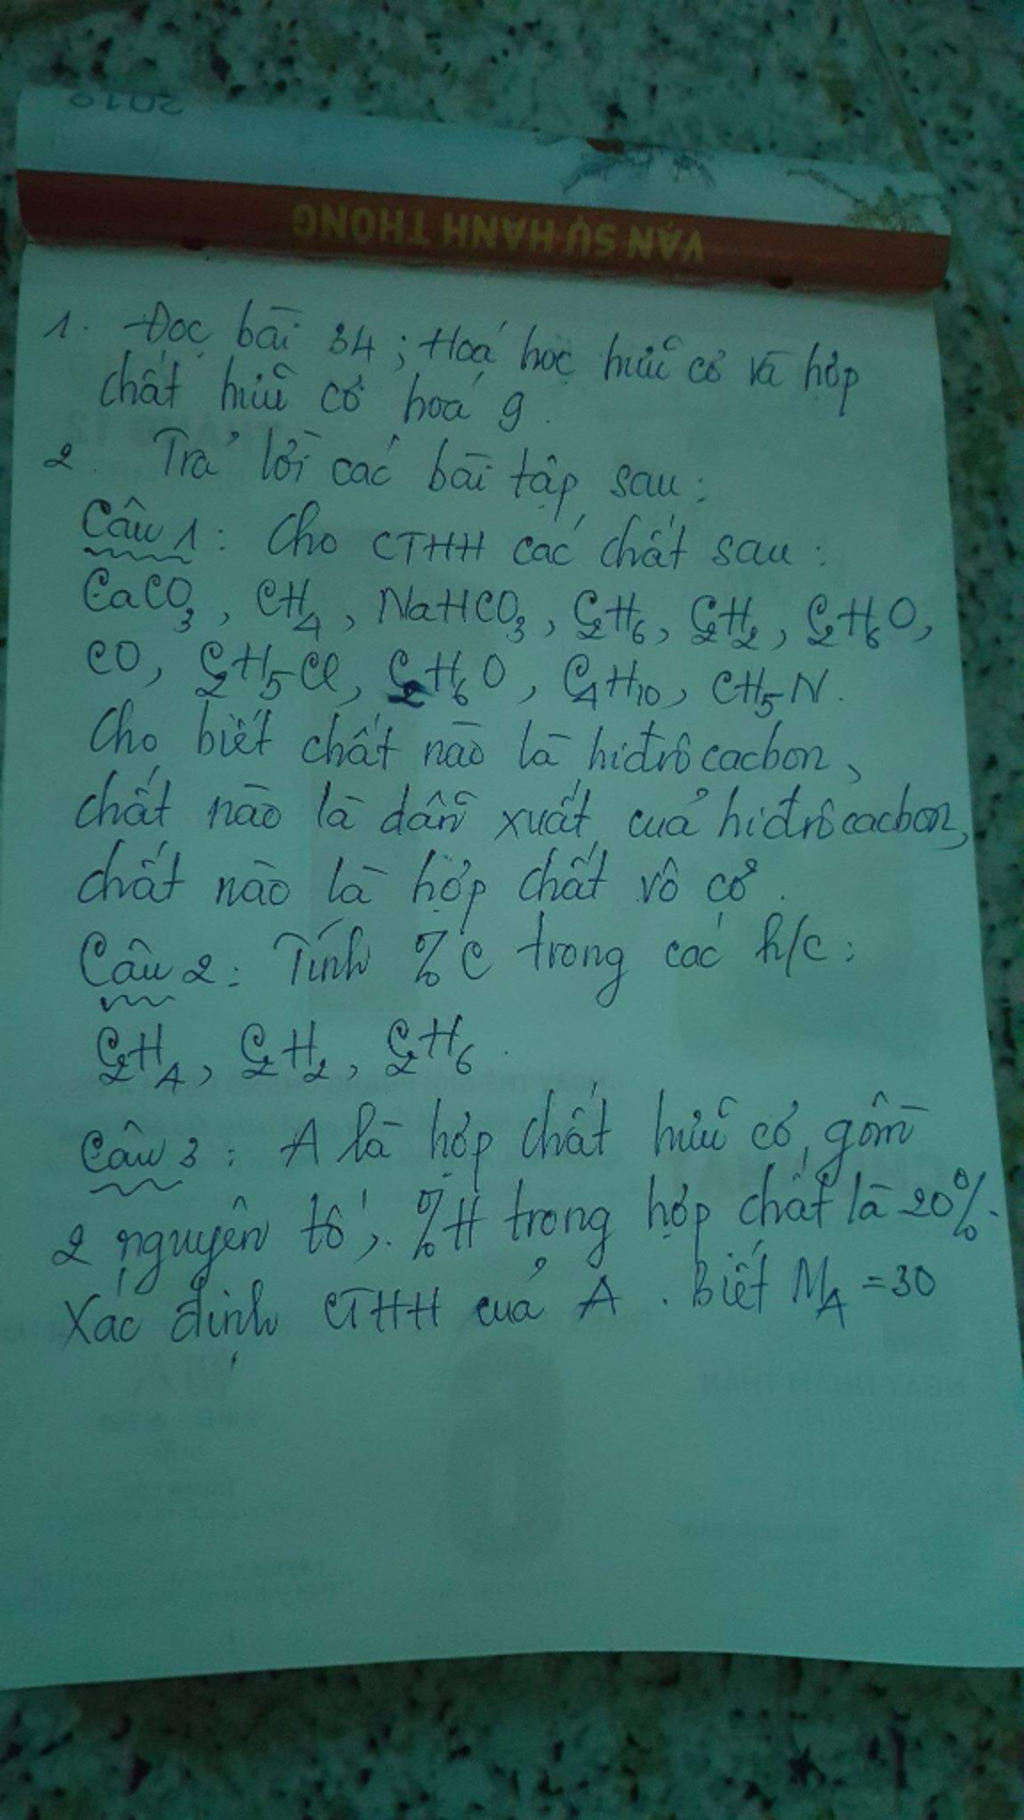 2019
VẠN SỰ HANH THÔNG
1. Đọc bài 34; Hoá học hữu cơ và hợp
chất hữu cơ hoá 9.
2. Trả lời các bài tập sau:
Câu 1: Cho CTHH các chất sau:
CaCO₃, CH₄, NaHCO₃, C₂H₆, C₂H₂, C₂H₆O,
CO, C₂H₅Cl, C₂H₆O, C₄H₁₀, CH₅N.
Cho biết chất nào là hiđrôcacbon,
chất nào là dẫn xuất của hiđrôcacbon,
chất nào là hợp chất vô cơ.
Câu 2: Tính %C trong các h/c:
C₂H₄, C₂H₂, C₂H₆.
Câu 3: A là hợp chất hữu cơ, gồm
2 nguyên tố, %H trong hợp chất là 20%.
Xác định CTHH của A. Biết M_A = 30